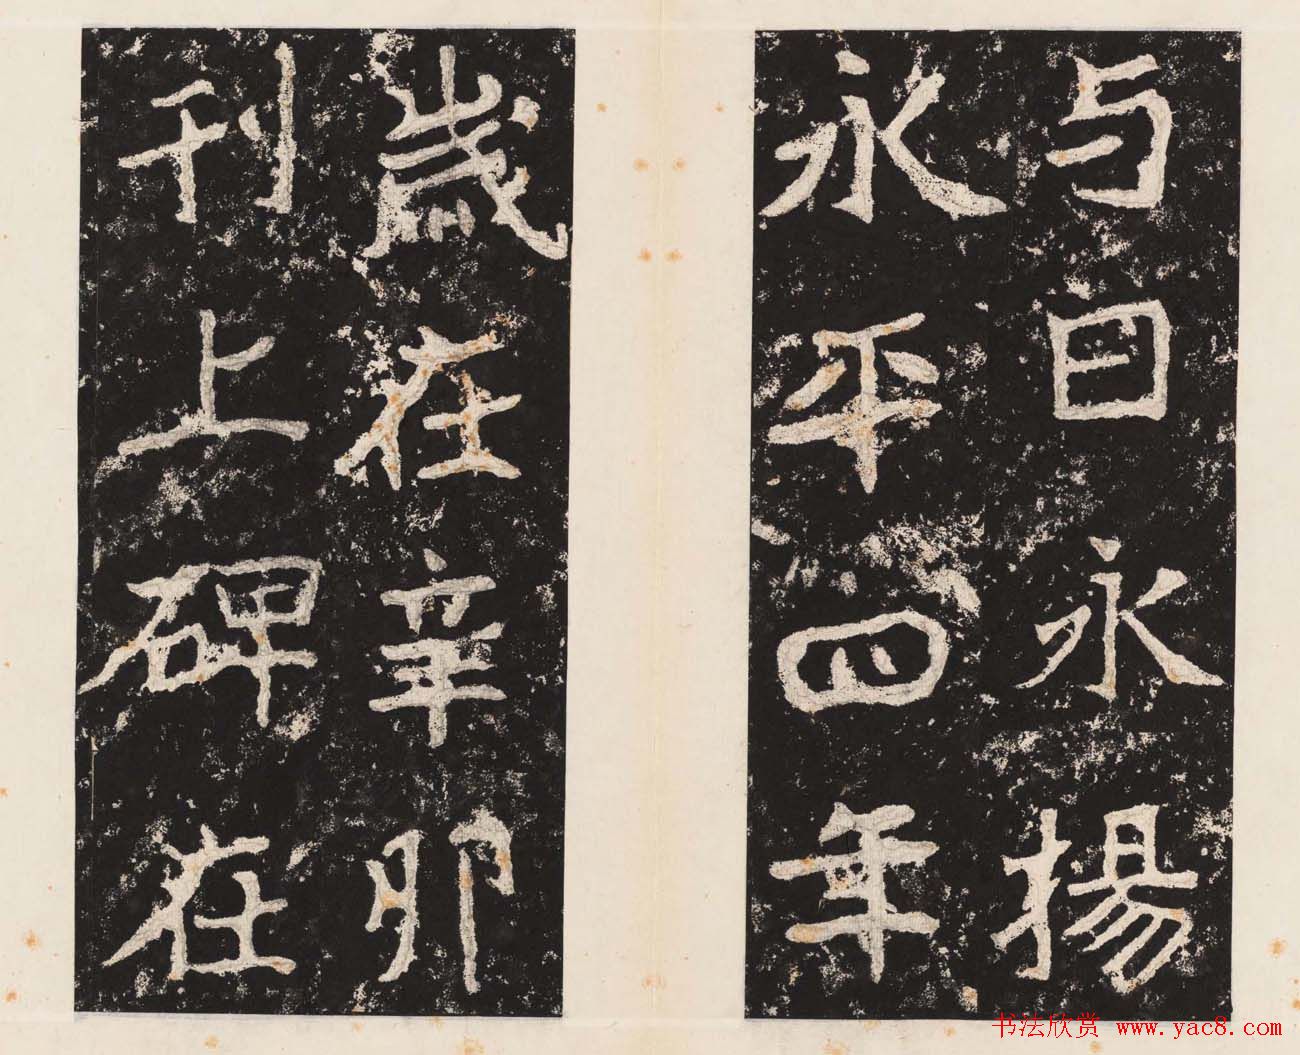 与日永揚
永平四年
歲在辛卯
刊上碑在
书法欣赏 www.yac8.com